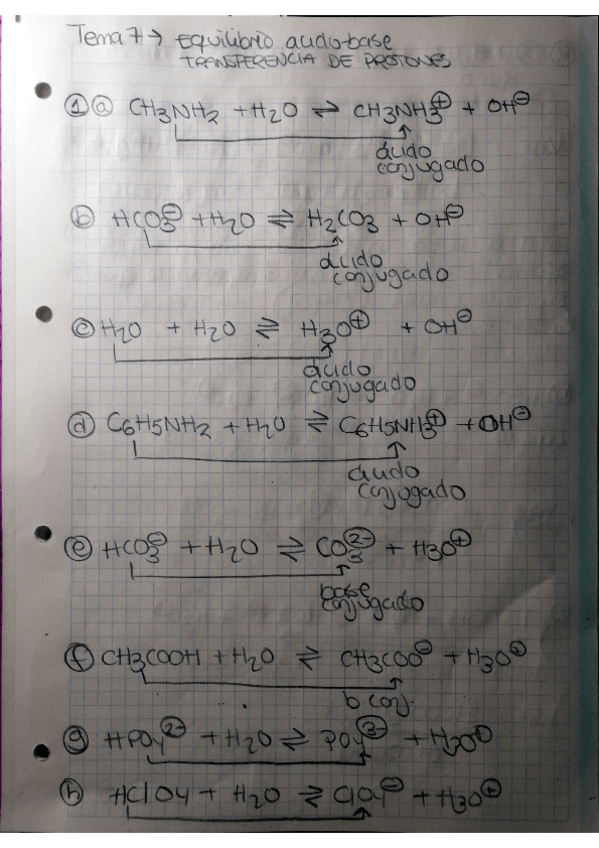 Tema 7 → Equilibrio acido-base
TRANSFERENCIA DE PROTONES
① ⓐ CH3NH2 + H2O ⇌ CH3NH3⊕ + OH⊖
ácido
conjugado
ⓑ HCO3⊖ + H2O ⇌ H2CO3 + OH⊖
ácido
conjugado
ⓒ H2O + H2O ⇌ H3O⊕ + OH⊖
ácido
conjugado
ⓓ C6H5NH2 + H2O ⇌ C6H5NH3⊕ + OH⊖
ácido
conjugado
ⓔ HCO3⊖ + H2O ⇌ CO3 2- + H3O⊕
base
conjugado
ⓕ CH3COOH + H2O ⇌ CH3COO⊖ + H3O⊕
b conj.
ⓖ HPO4 2- + H2O ⇌ PO4 3- + H3O⊕
ⓗ HClO4 + H2O ⇌ ClO4⊖ + H3O⊕